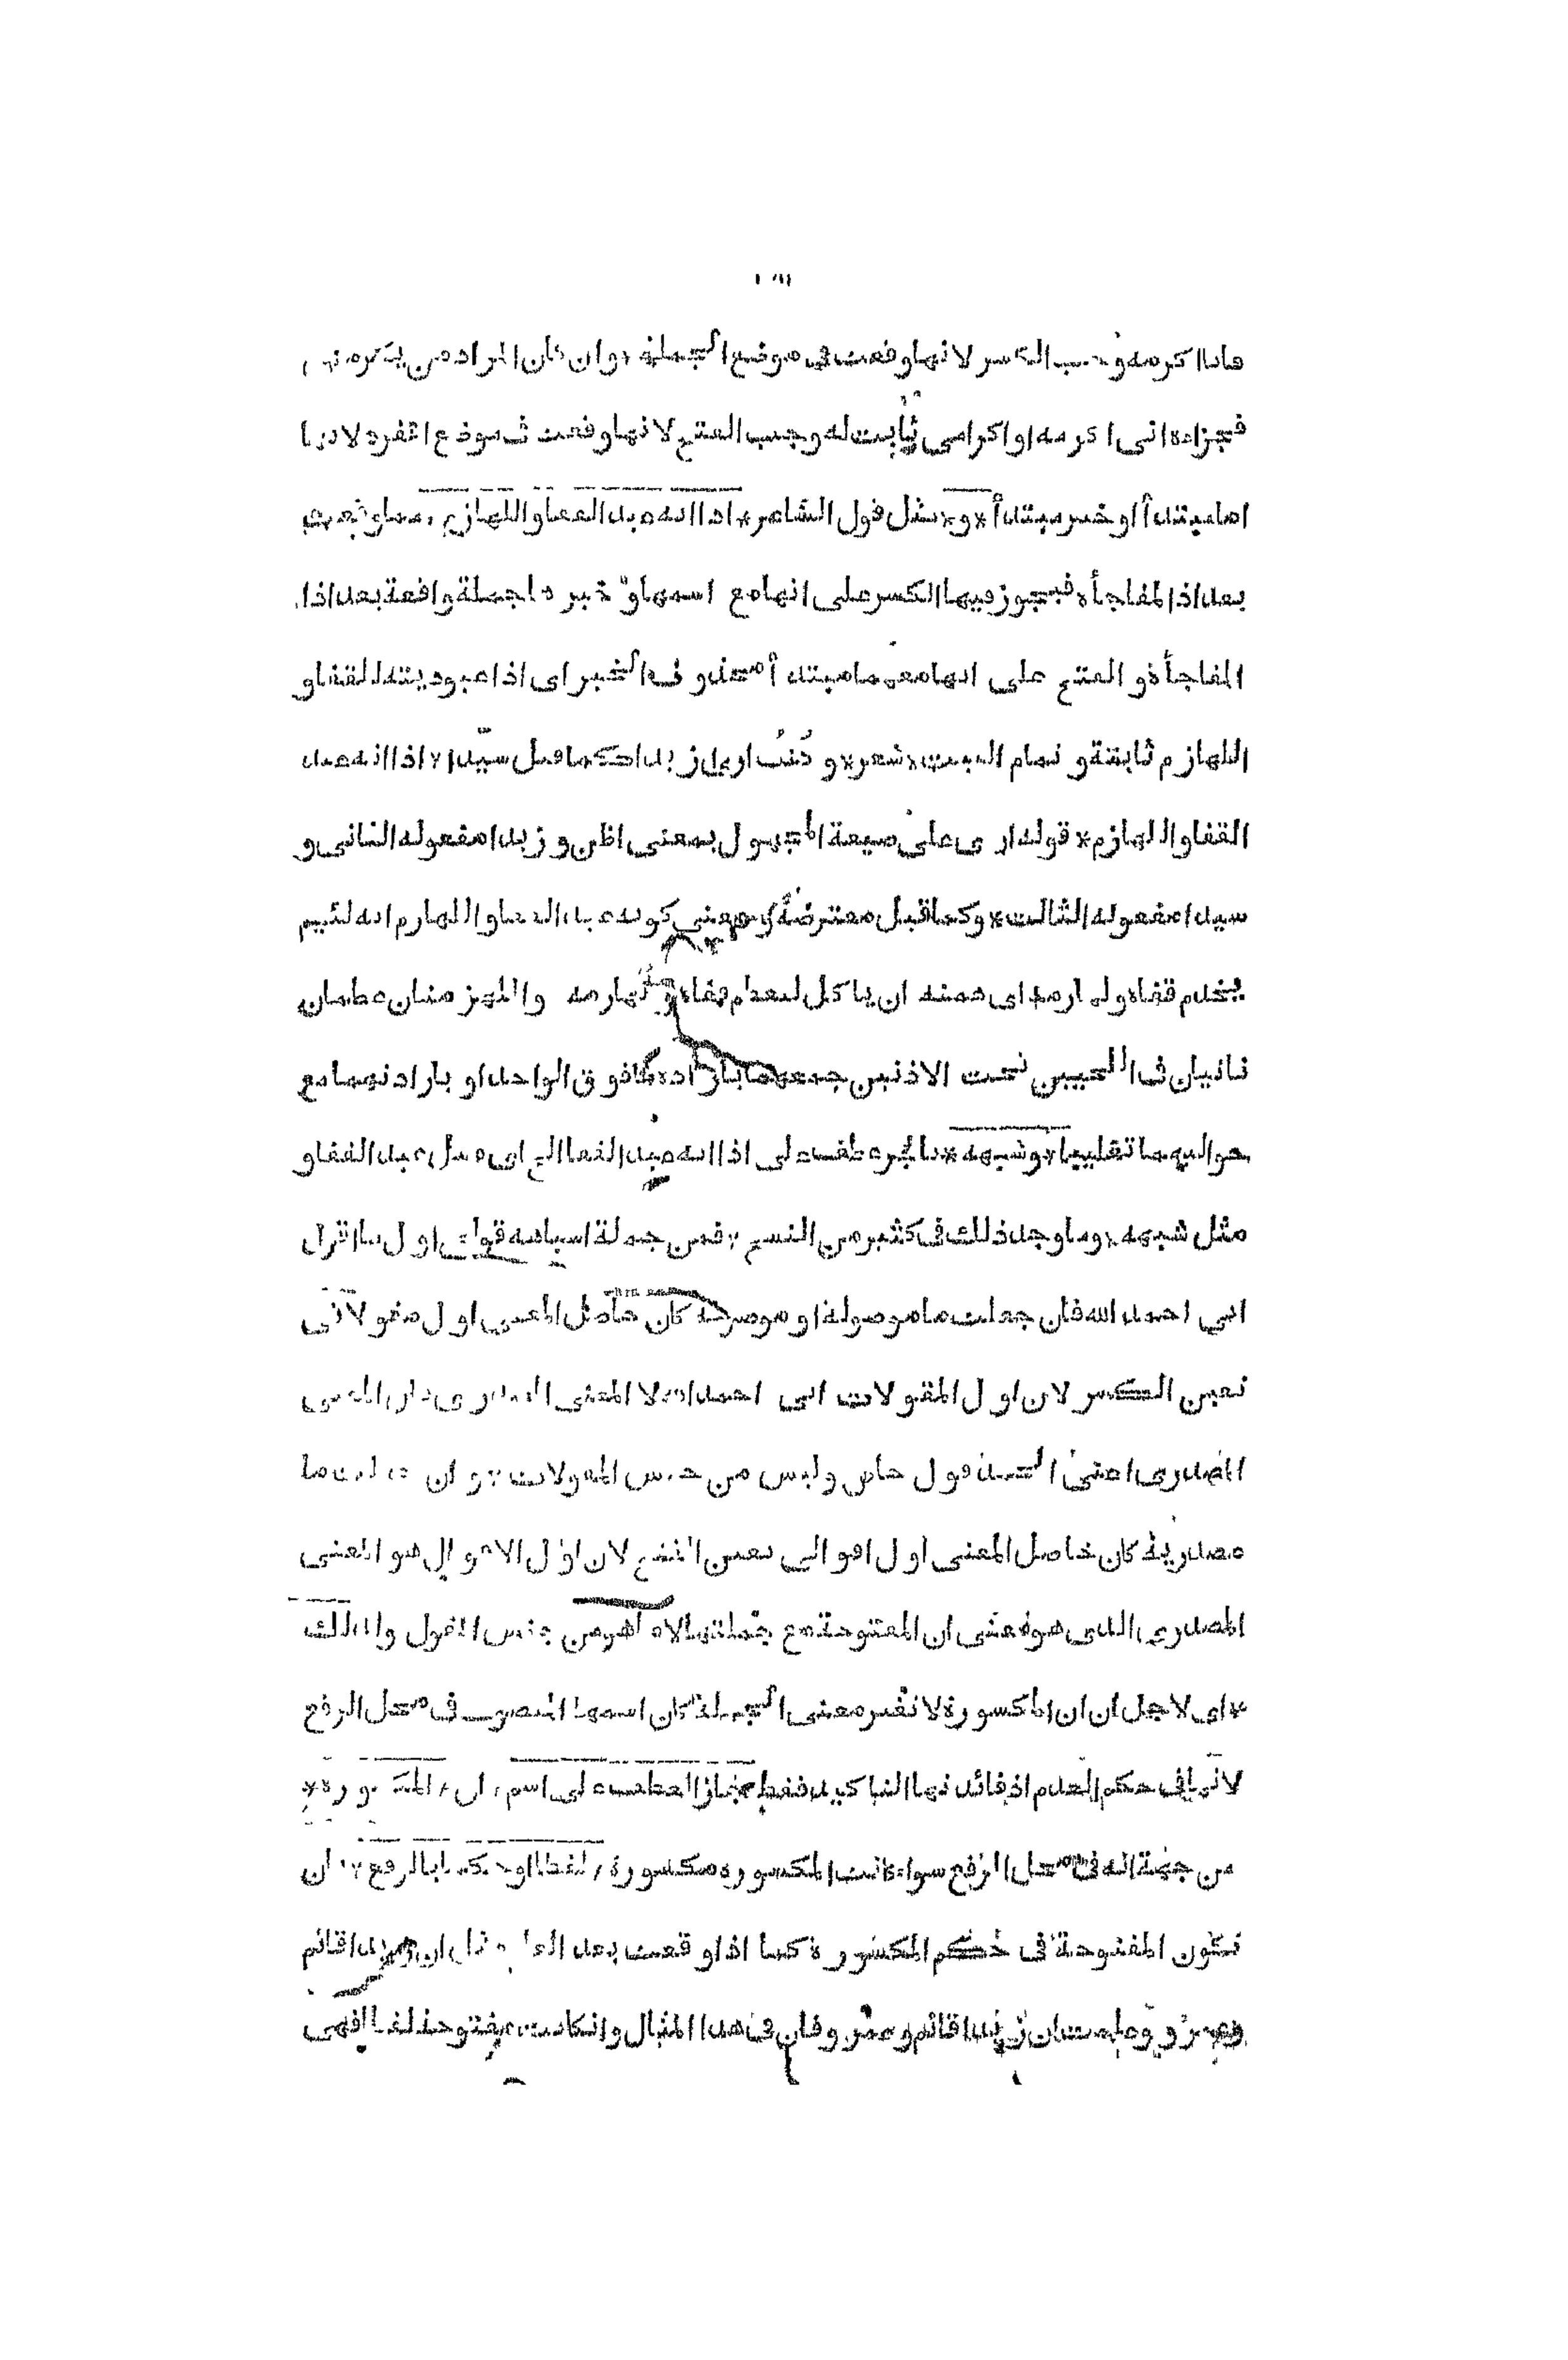 فانا اكرمه وجب الكسر لانها وقعت فى موضع الجملة * وان كان المراد من يكرمنى
فجزاءه انى اكرمه او اكرامى ثابت له وجب الفتح لانها وقعت فى موضع المفرد لانها
اما مبتدأ او خبر مبتدأ * و * مثل قول الشاعر * اذا انه عبد القفا واللهازم * مما وقعت
بعد اذا المفاجأة فيجوز فيها الكسر على انها مع اسمها وخبرها جملة واقعة بعد اذا
المفاجأة و الفتح على انها معهما مبتدأ محذوف الخبر اى اذا عبوديته للقفا و
اللهازم ثابتة و تمام البيت * شعر * و كنت ارى زيدا كما قيل سيدا * اذا انه عبد
القفا و اللهازم * قوله ارى على صيغة المجهول بمعنى اظن و زيدا مفعوله الثانى و
سيدا مفعوله الثالث * وكما قيل معترضة و معنى كونه عبد القفا و اللهازم انه لئيم
يخدم قفاه ولهازمه اى همته ان ياكل ليعظم قفاه و لهازمه واللهزمتان عظمان
ناتيان فى اللحيين تحت الاذنين جمعهما بارادة ما فوق الواحد او بارادتهما مع
حواليهما تغليبا * وشبهه * بالجر عطف على اذا انه عبد القفا الخ اى مثل عبد القفا و
مثل شبهه * وما وجد ذلك فى كثير من النسخ * فمن جملة اشباهه قولك اول ما اقول
انى احمد الله فان جعلت ما موصولة او موصوفة كان حاصل المعنى اول مقولاتى
تعين الكسر لان اول المقولات انى احمد الله لا المعنى المصدرى فان المعنى
المصدرى اعنى الحمد قول خاص وليس من جنس المقولات * وان جعلت ما
مصدرية كان حاصل المعنى اول اقوالى تعين الفتح لان اول الاقوال هو المعنى
المصدرى الذى هو معنى ان المفتوحة مع جملتها لا ما هو من جنس المقول ولذلك
* اى لاجل ان ان المكسورة لا تغير معنى الجملة كان اسمها المنصوب فى محل الرفع
لانها فى حكم العدم اذ فائدتها التاكيد فقط جاز العطف على اسم ان المكسورة *
من جهة انه فى محل الرفع سواء كانت المكسورة مكسورة * لفظا او حكما بالرفع * ان
تكون المفتوحة فى حكم المكسورة كما اذا وقعت بعد العلم مثل ان زيدا قائم
وعمرو وعلمت ان زيدا قائم وعمرو فان فى هذا المثال وان كانت مفتوحة لفظا فهى